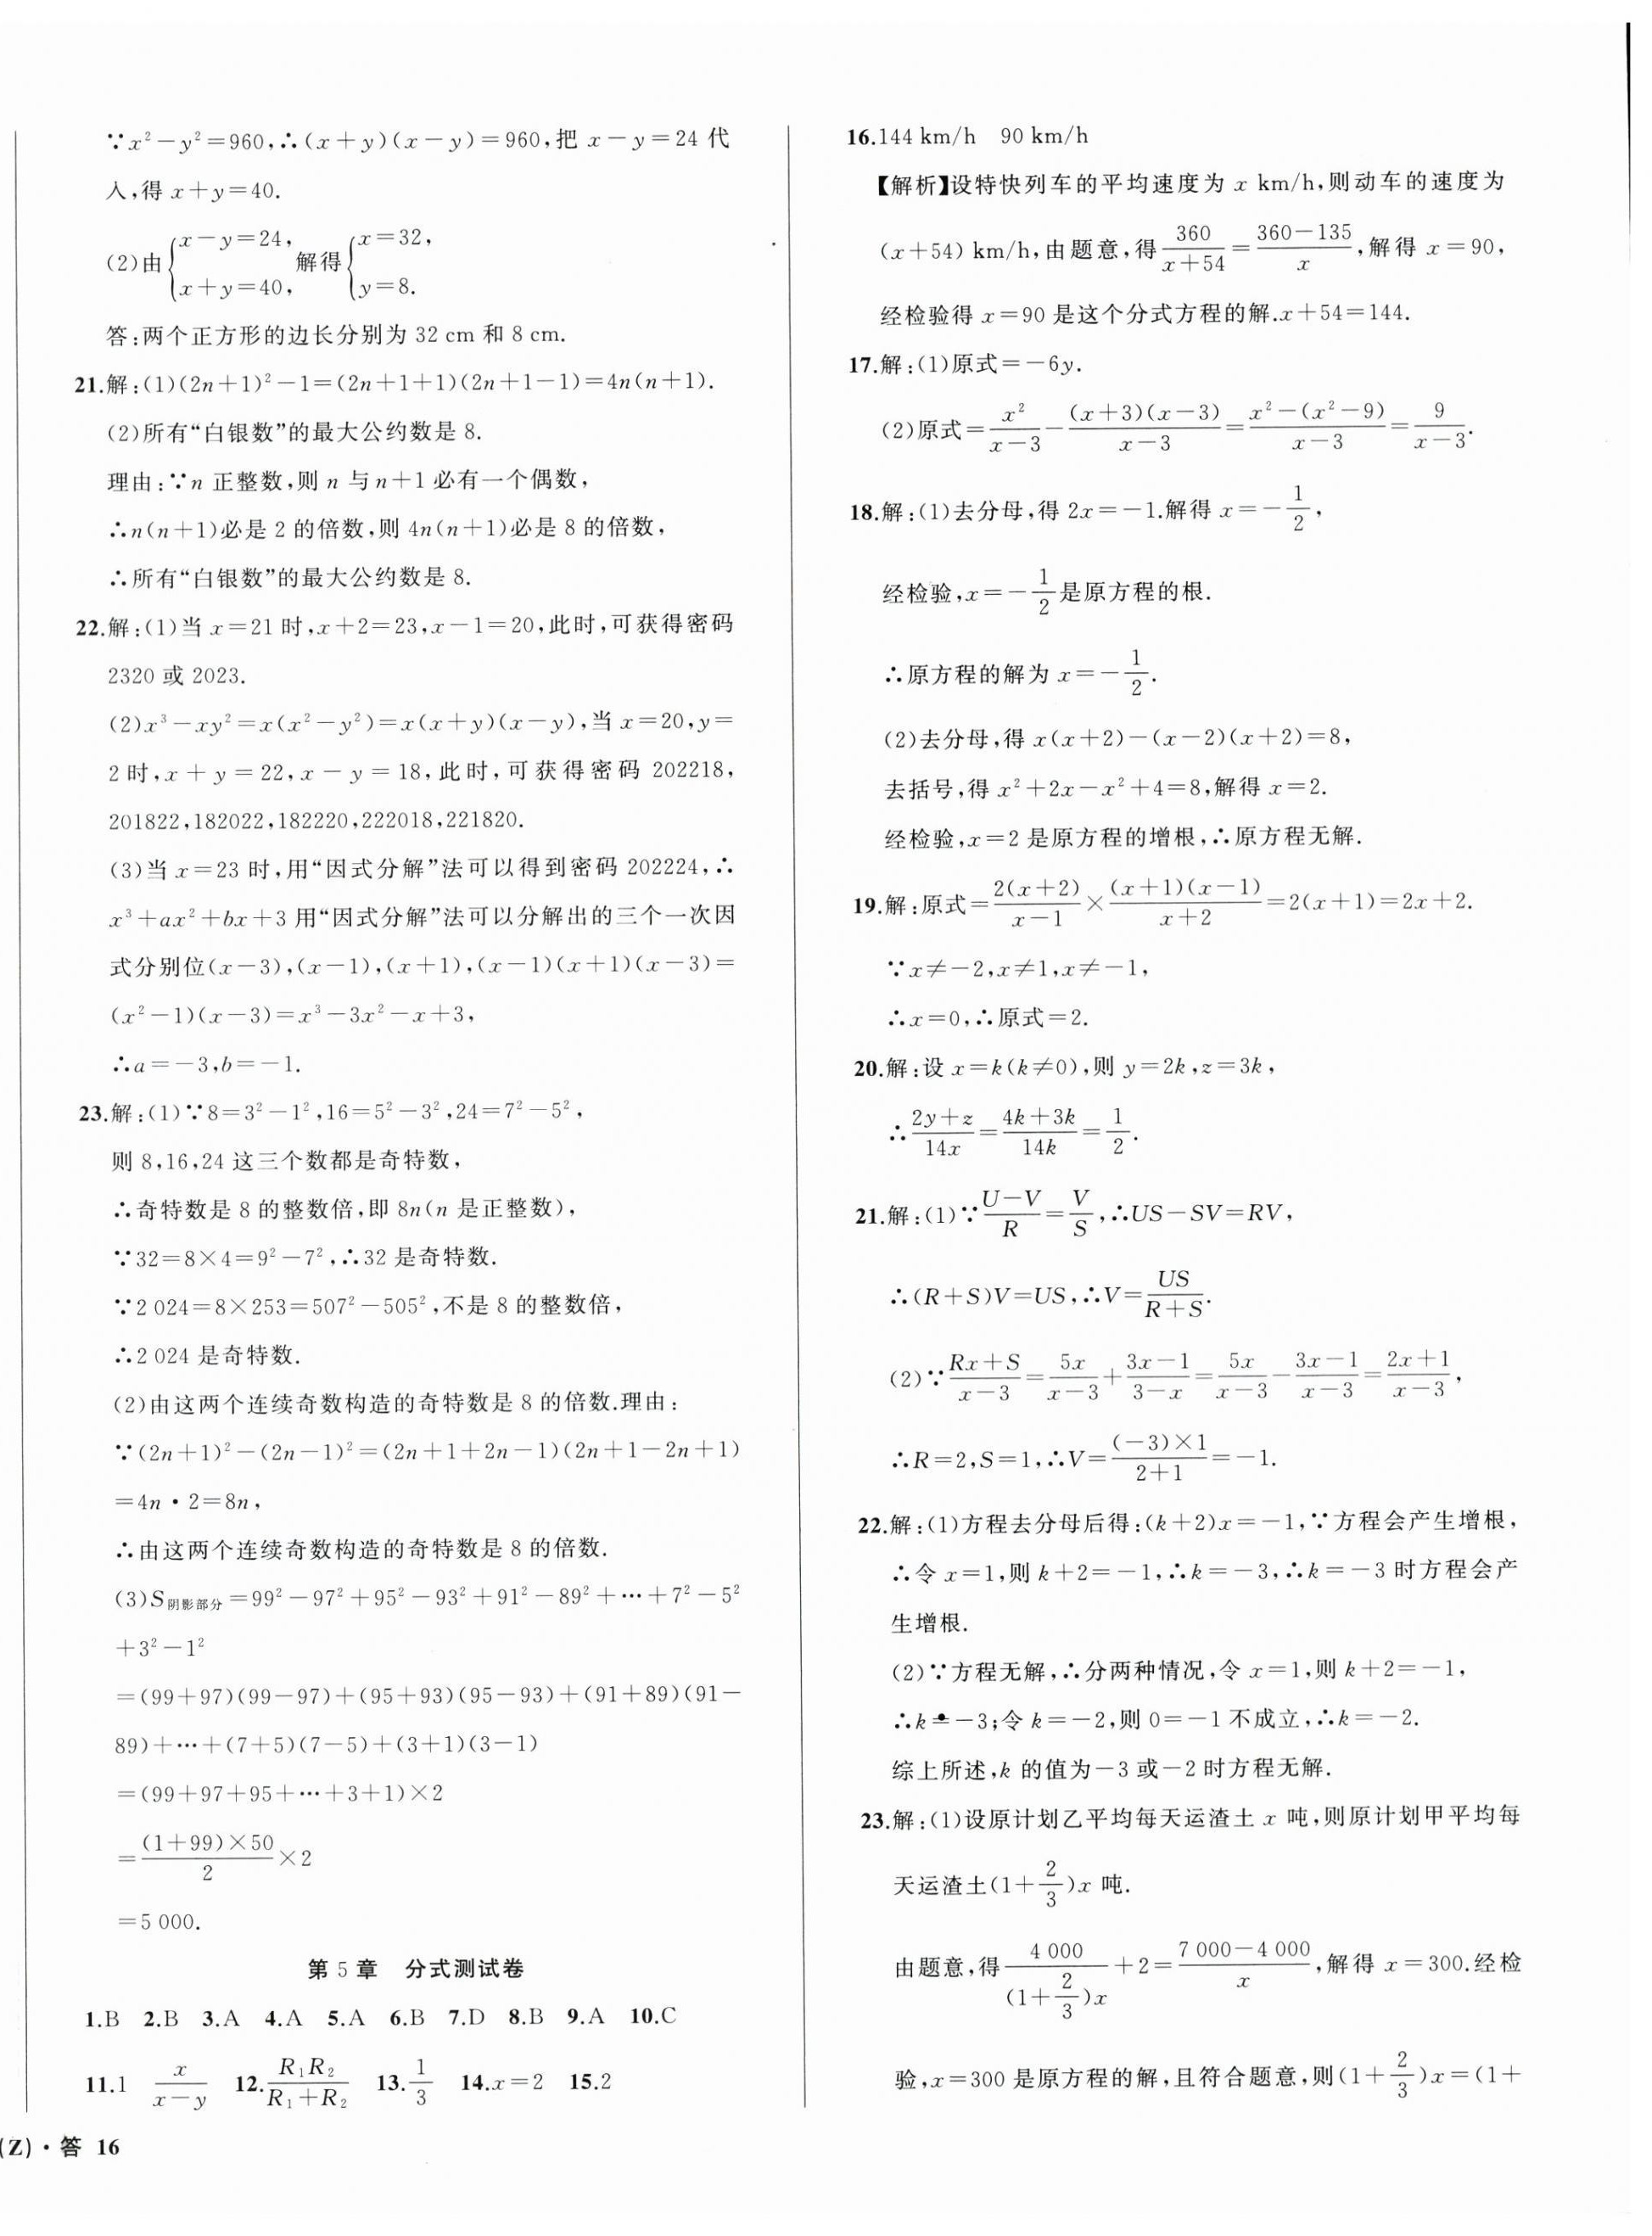 ∵x²−y²=960,∴(x+y)(x−y)=960,把 x−y=24 代
入,得 x+y=40.
(2)由{x−y=24, x+y=40, 解得{x=32, y=8.
答:两个正方形的边长分别为 32 cm 和 8 cm.
21.解:(1)(2n+1)²−1=(2n+1+1)(2n+1−1)=4n(n+1).
(2)所有“白银数”的最大公约数是 8.
理由:∵n 正整数,则 n 与 n+1 必有一个偶数,
∴n(n+1)必是 2 的倍数,则 4n(n+1)必是 8 的倍数,
∴所有“白银数”的最大公约数是 8.
22.解:(1)当 x=21 时,x+2=23,x−1=20,此时,可获得密码
2320 或 2023.
(2)x³−xy²=x(x²−y²)=x(x+y)(x−y),当 x=20,y=
2 时,x+y=22,x−y=18,此时,可获得密码 202218,
201822,182022,182220,222018,221820.
(3)当 x=23 时,用“因式分解”法可以得到密码 202224,∴
x³+ax²+bx+3 用“因式分解”法可以分解出的三个一次因
式分别位(x−3),(x−1),(x+1),(x−1)(x+1)(x−3)=
(x²−1)(x−3)=x³−3x²−x+3,
∴a=−3,b=−1.
23.解:(1)∵8=3²−1²,16=5²−3²,24=7²−5²,
则 8,16,24 这三个数都是奇特数,
∴奇特数是 8 的整数倍,即 8n(n 是正整数),
∵32=8×4=9²−7²,∴32 是奇特数.
∵2 024=8×253=507²−505²,不是 8 的整数倍,
∴2 024 是奇特数.
(2)由这两个连续奇数构造的奇特数是 8 的倍数.理由:
∵(2n+1)²−(2n−1)²=(2n+1+2n−1)(2n+1−2n+1)
=4n·2=8n,
∴由这两个连续奇数构造的奇特数是 8 的倍数.
(3)S阴影部分=99²−97²+95²−93²+91²−89²+…+7²−5²
+3²−1²
=(99+97)(99−97)+(95+93)(95−93)+(91+89)(91−
89)+…+(7+5)(7−5)+(3+1)(3−1)
=(99+97+95+…+3+1)×2
=(1+99)×50/2×2
=5 000.
第 5 章 分式测试卷
1.B 2.B 3.A 4.A 5.A 6.B 7.D 8.B 9.A 10.C
11.1 x/(x−y) 12.R₁R₂/(R₁+R₂) 13.1/3 14.x=2 15.2
(Z)·答 16
16.144 km/h 90 km/h
【解析】设特快列车的平均速度为 x km/h,则动车的速度为
(x+54) km/h,由题意,得360/(x+54)=(360−135)/x,解得 x=90,
经检验得 x=90 是这个分式方程的解.x+54=144.
17.解:(1)原式=−6y.
(2)原式=x²/(x−3)−(x+3)(x−3)/(x−3)=(x²−(x²−9))/(x−3)=9/(x−3).
18.解:(1)去分母,得 2x=−1.解得 x=−1/2,
经检验,x=−1/2是原方程的根.
∴原方程的解为 x=−1/2.
(2)去分母,得 x(x+2)−(x−2)(x+2)=8,
去括号,得 x²+2x−x²+4=8,解得 x=2.
经检验,x=2 是原方程的增根,∴原方程无解.
19.解:原式=2(x+2)/(x−1)×(x+1)(x−1)/(x+2)=2(x+1)=2x+2.
∵x≠−2,x≠1,x≠−1,
∴x=0,∴原式=2.
20.解:设 x=k(k≠0),则 y=2k,z=3k,
∴(2y+z)/14x=(4k+3k)/14k=1/2.
21.解:(1)∵(U−V)/R=V/S,∴US−SV=RV,
∴(R+S)V=US,∴V=US/(R+S).
(2)∵(Rx+S)/(x−3)=5x/(x−3)+(3x−1)/(3−x)=5x/(x−3)−(3x−1)/(x−3)=(2x+1)/(x−3),
∴R=2,S=1,∴V=(−3)×1/(2+1)=−1.
22.解:(1)方程去分母后得:(k+2)x=−1,∵方程会产生增根,
∴令 x=1,则 k+2=−1,∴k=−3,∴k=−3 时方程会产
生增根.
(2)∵方程无解,∴分两种情况,令 x=1,则 k+2=−1,
∴k=−3;令 k=−2,则 0=−1 不成立,∴k=−2.
综上所述,k 的值为−3 或−2 时方程无解.
23.解:(1)设原计划乙平均每天运渣土 x 吨,则原计划甲平均每
天运渣土(1+2/3)x 吨.
由题意,得4 000/((1+2/3)x)+2=(7 000−4 000)/x,解得 x=300.经检
验,x=300 是原方程的解,且符合题意,则(1+2/3)x=(1+